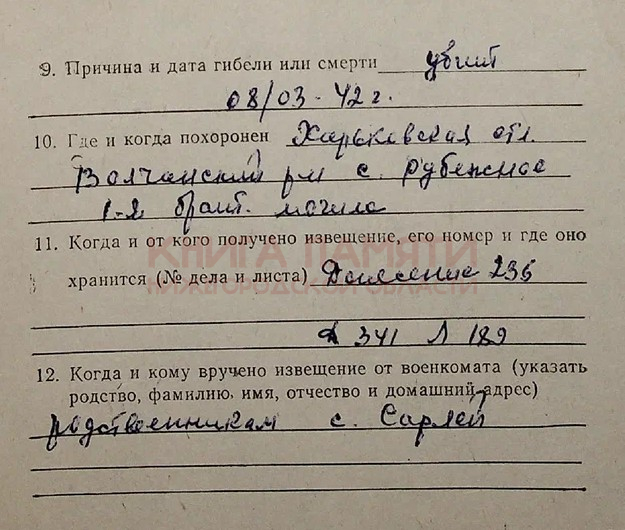 9. Причина и дата гибели или смерти убит
08/03-42 г.
10. Где и когда похоронен Харьковская отл.
Волчанский р-н с. Рубежное
1-я брат. могила
11. Когда и от кого получено извещение, его номер и где оно
КНИГА ПАМЯТИ
хранится (№ дела и листа) Донесение 236
НИЖЕГОРОДСКОЙ ОБЛАСТИ
Д 341 Л 189
12. Когда и кому вручено извещение от военкомата (указать
родство, фамилию, имя, отчество и домашний адрес)
родственникам с. Сарлей